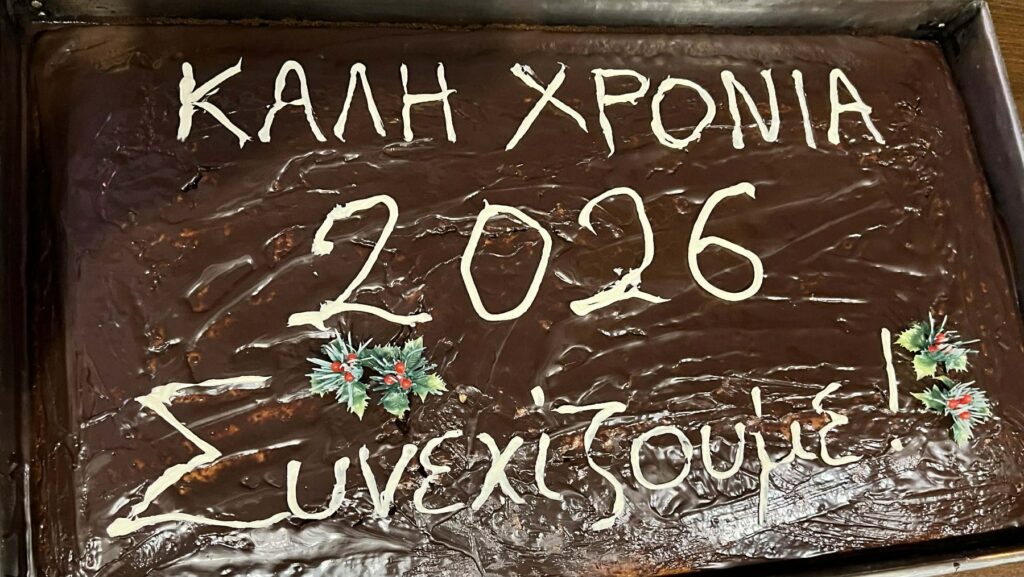 ΚΑΛΗ ΧΡΟΝΙΑ
2026
Συνεχίζουμέ!